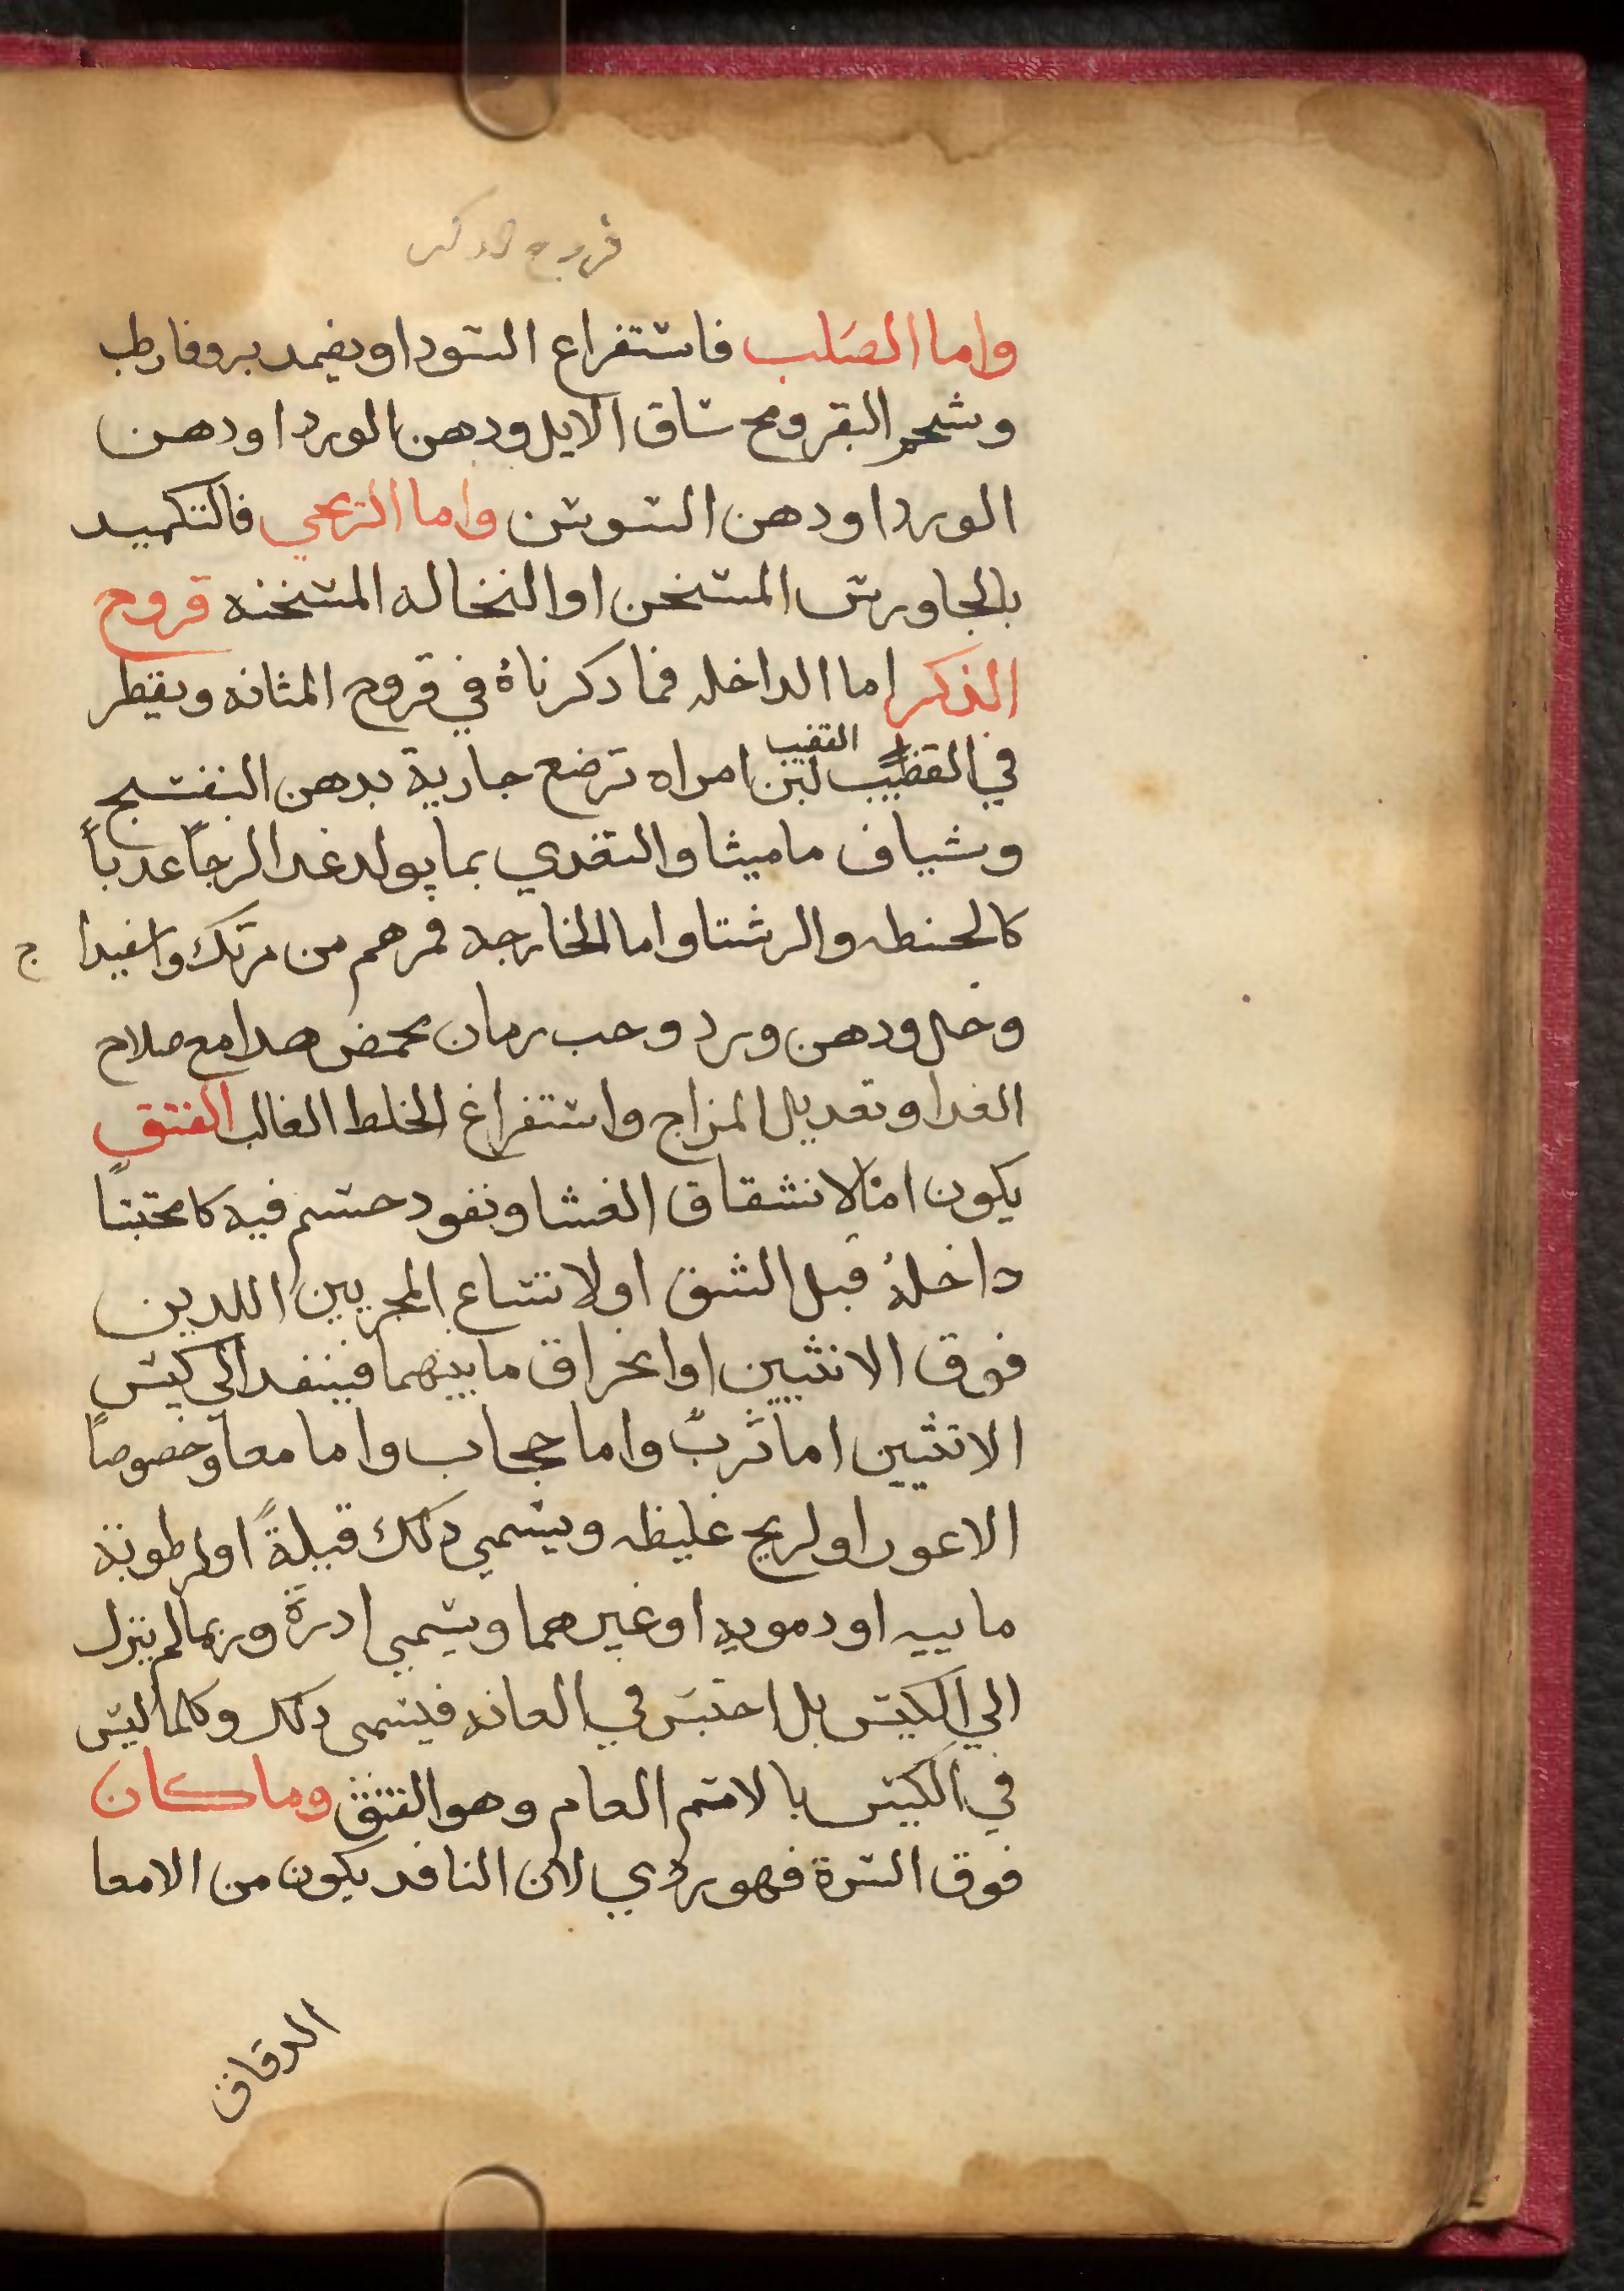 قروح الدكر
واما الصَلب فاستفراع السودا ويضمد بروفا رطب
وشحم البقر ومخ ساق الايل ودهن الورد او دهن
الورد او دهن السوسن واما الريحي فالتكميد
بالجاورس المسخن او النخاله المسخنه قروح
الذكر اما الداخله فما دكرناهُ في قروح المثانه ويقطر
القضيب
في القضيب لبن امراه ترضع جارية بدهن البنفسج
وشياف ماميثا والتغدي بما يولد غدا لزجاً عدباً
كالحنطه والرشتا واما الخارجه فمرهم من مرتك واسفيدا ج
وخل ودهن ورد وحب رمان محمض هدا مع صلاح
الغدا وتعديل المزاج واستفراغ الخلط الغالب الفتق
يكون امّا لانشقاق الغشا ونفود جسم فيه كا محتبسًا
داخلهُ قبل الشق او لاتساع المجريين اللدين
فوق الانثيين او انخراق ما بينهما فينفد الي كيس
الانثيين اما ثربٌ واما حجاب واما معاً وخصوصاً
الاعور او لريح غليظه ويسمي دلك قيلةً او لرطوبة
ماييه او دمويه او غيرهما ويسمي ادرةً وربما لم ينزل
الي الكيس بل احتبسَ في العانه فيسمى دلك وكلما ليس
في الكيس بالاسم العام وهو الفتق وما كان
فوق السرة فهو ردي لان النافد يكون من الامعا
الدقاق